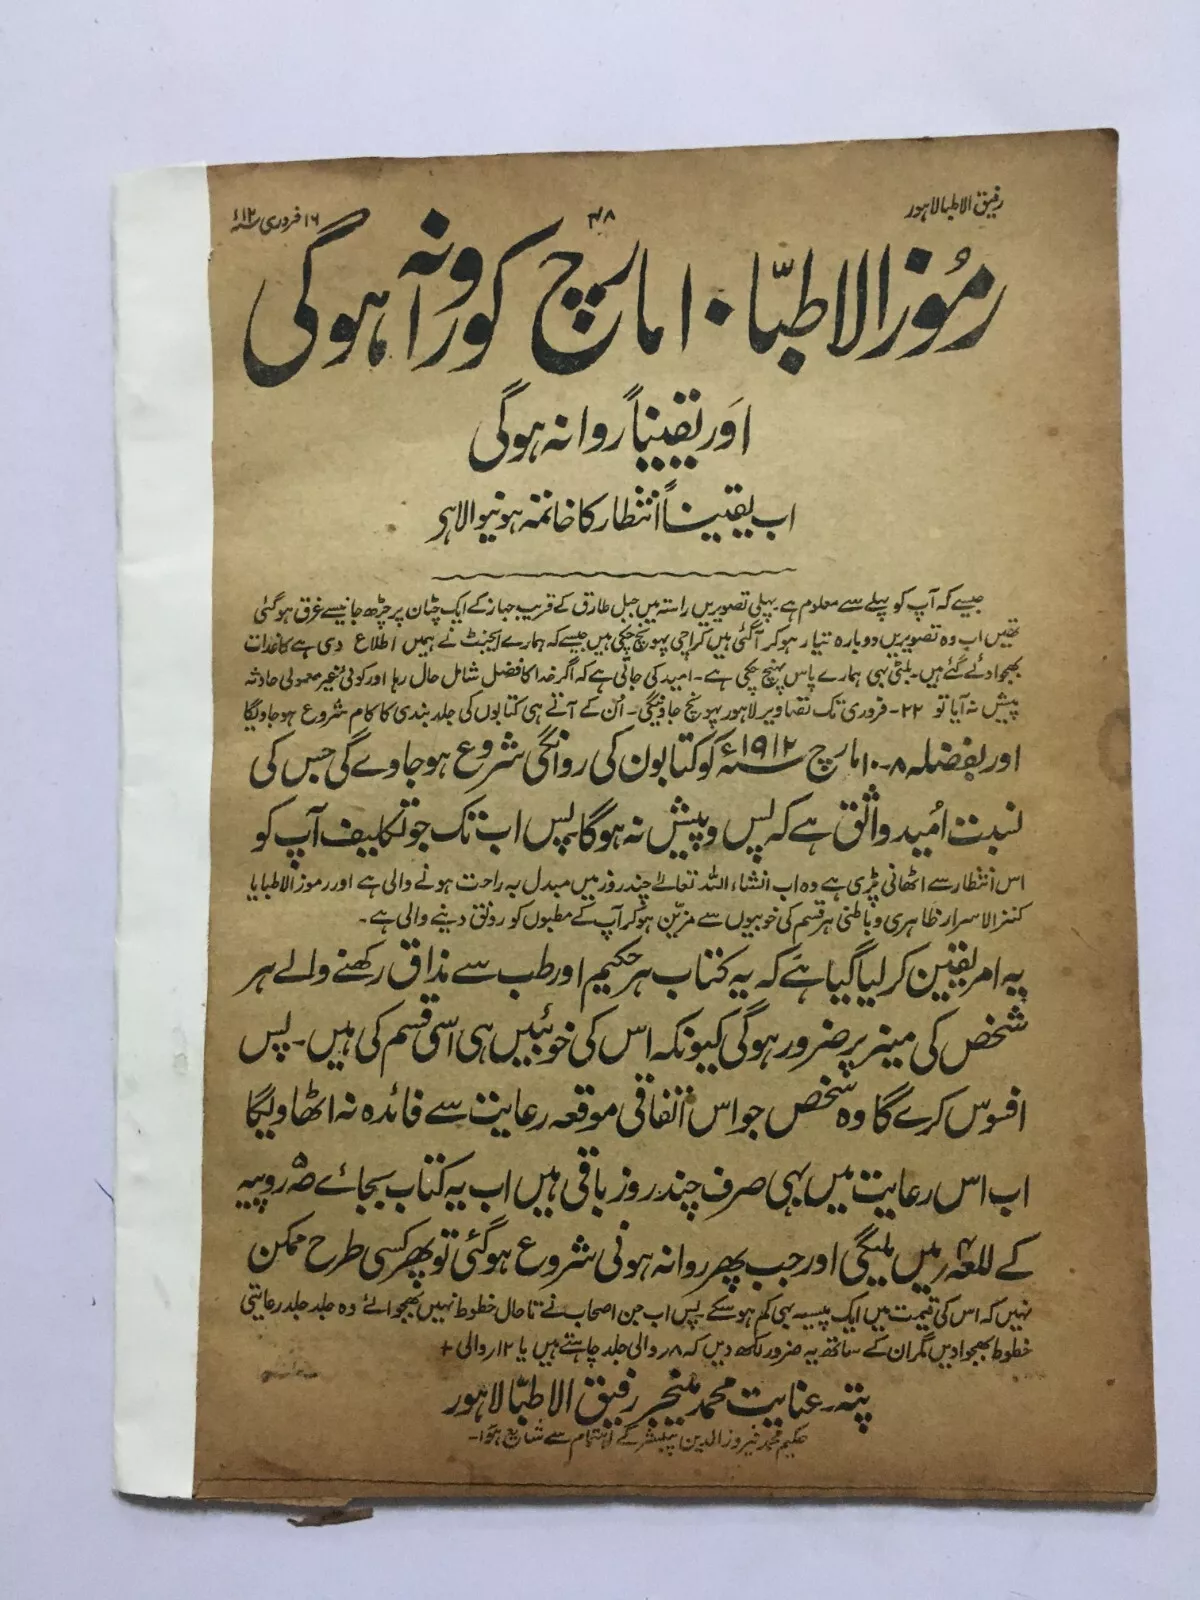 رفیق الاطبا لاہور
۴۸
۱۶ فروری ۱۲ء
رموز الاطبّا ۱۰ مارچ کو روانہ ہوگی
اَور یقیناً روانہ ہوگی
اب یقیناً انتظار کا خاتمہ ہونیوالا ہی
جیسے کہ آپ کو پہلے سے معلوم ہے۔ پہلی تصویریں راستہ میں جبل طارق کے قریب جہاز کے ایک چٹان پر چڑھ جانیسے غرق ہوگئی
تھیں اب وہ تصویریں دوبارہ تیار ہوکر آگئی ہیں کراچی پہونچ چکی ہیں جیسے کہ ہمارے ایجنٹ نے ہمیں اطلاع دی ہے کاغذات
بھجوا دئے گئے ہیں۔ بلٹی بھی ہمارے پاس پہنچ چکی ہے۔ امید کی جاتی ہے کہ اگر خدا کا فضل شامل حال رہا اور کوئی غیر معمولی حادثہ
پیش نہ آیا تو ۲۲۔ فروری تک تصاویر لاہور پہونچ جاوینگی۔ اُن کے آتے ہی کتابوں کی جلد بندی کا کام شروع ہوجاویگا
اور بفضلہ ۸۔۱۰ مارچ ۱۹۱۲ء کو کتابون کی روانگی شروع ہوجاوے گی جس کی
نسبت اُمید واثق ہے کہ پس و پیش نہ ہوگا۔ پس اب تک جو تکالیف آپ کو
اس انتظار سے اٹھانی پڑی ہے وہ اب انشاء اللہ تعالےٰ چند روز میں مبدل بہ راحت ہونے والی ہے اور رموز الاطبا یا
کنز الاسرار ظاہری و باطنی ہر قسم کی خوبیوں سے مزیّن ہوکر آپ کے مطبوں کو رونق دینے والی ہے۔
یہ امر یقین کر لیا گیا ہے کہ یہ کتاب ہر حکیم اور طب سے مذاق رکھنے والے ہر
شخص کی میز پر ضرور ہوگی کیونکہ اس کی خوبئیں ہی اسی قسم کی ہیں۔ پس
افسوس کرے گا وہ شخص جو اس اتفاقی موقعہ رعایت سے فائدہ نہ اٹھاویگا
اب اس رعایت میں بھی صرف چند روز باقی ہیں اب یہ کتاب بجائے ۵ روپیہ
کے میں ملیگی اور جب پھر روانہ ہونی شروع ہوگئی تو پھر کسی طرح ممکن
نہیں کہ اس کی قیمت میں ایک پیسہ بھی کم ہوسکے۔ پس اب جن اصحاب نے تا حال خطوط نہیں بھجوائے وہ جلد جلد رعایتی
خطوط بھجوا دیں مگر ان کے ساتھ یہ ضرور لکھ دیں کہ ۸ر والی جلد چاہتے ہیں یا ۱۲ر والی +
پتہ۔ عنایت محمد منیجر رفیق الاطبّا لاہور
حکیم محمد فیروز الدین پبلشر کے اہتمام سے شایع ہوَا۔